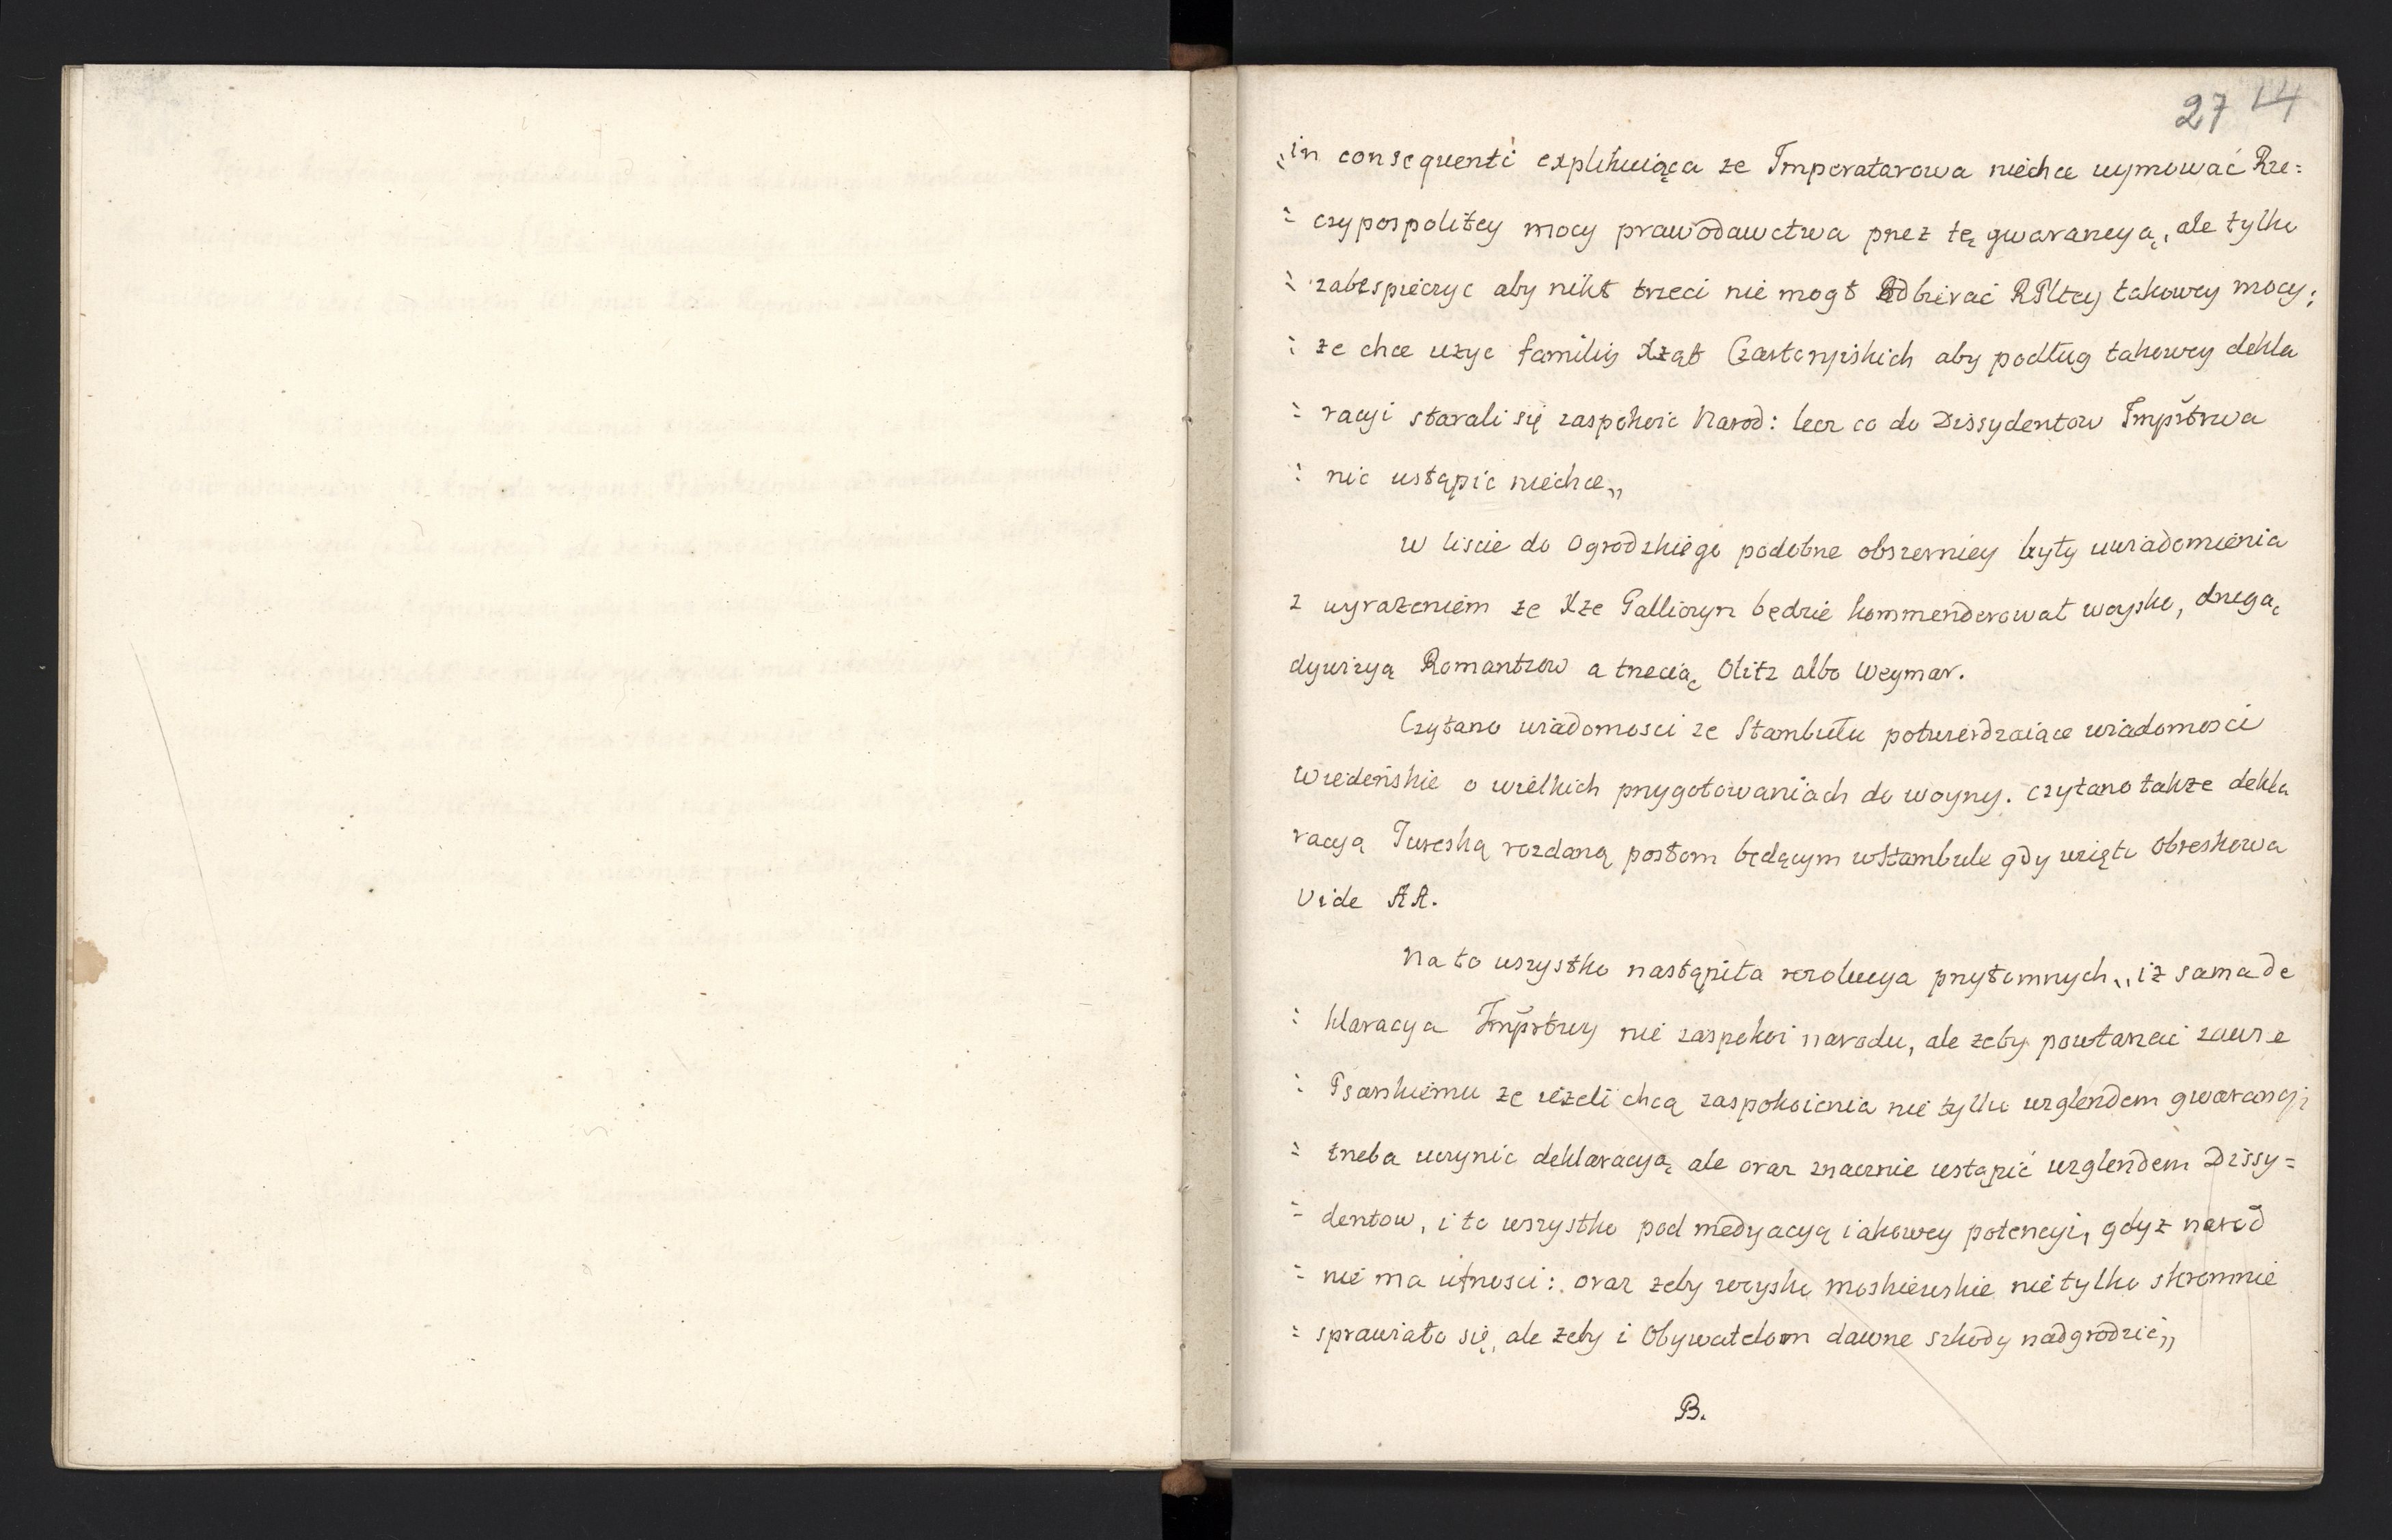 27 14
„in consequenti explikuiąca ze Imperatarowa niechce uymować Rze:
: czypospolitey mocy prawodawctwa przez tę gwarancyą, ale tylko
: zabespieczyc aby nikt trzeci nie mogł odbierać RPltey takowey mocy;
: ze chce uzyc familiy Xząt Czartoryiskich aby podług takowey dekla
: racyi starali się zaspokoic Narod: lecz co do Dissydentow Impřtrwa
: nic ustąpic niechce„
w liscie do Ogrodzkiego podobne obszerniey były uwiadomienia
z wyrazeniem ze Xze Galliczyn będzie kommenderował woysko, drugą
dywizyą Romantzow a trzecią Olitz albo Weymar.
Czytano wiadomosci ze Stambułu potwierdzaiące wiadomosci
Wiedeńskie o wielkich przygotowaniach do woyny. czytano takze dekla
racyą Turecką rozdaną posłom będącym w Stambule gdy wzięto Obreskowa
vide AA.
Na to wszystko nastąpiła rezolucya przytomnych „iz sama de
: klaracya Impřtwy nie zaspokoi narodu, ale zeby powtarzać zawsze
: Psarskiemu ze iezeli chcą zaspokoienia nie tylko wzglendem gwarancyi
: trzeba uczynic deklaracyą ale oraz znacznie ustąpić wzglendem Dissy=
: dentow, i to wszystko pod medyacyą iakowey potencyi, gdyz narod
: nie ma ufnosci: oraz zeby woysko moskiewskie nie tylko skromnie
: sprawiało się, ale zeby i Obywatelom dawne szkody nadgrodzić„
B.